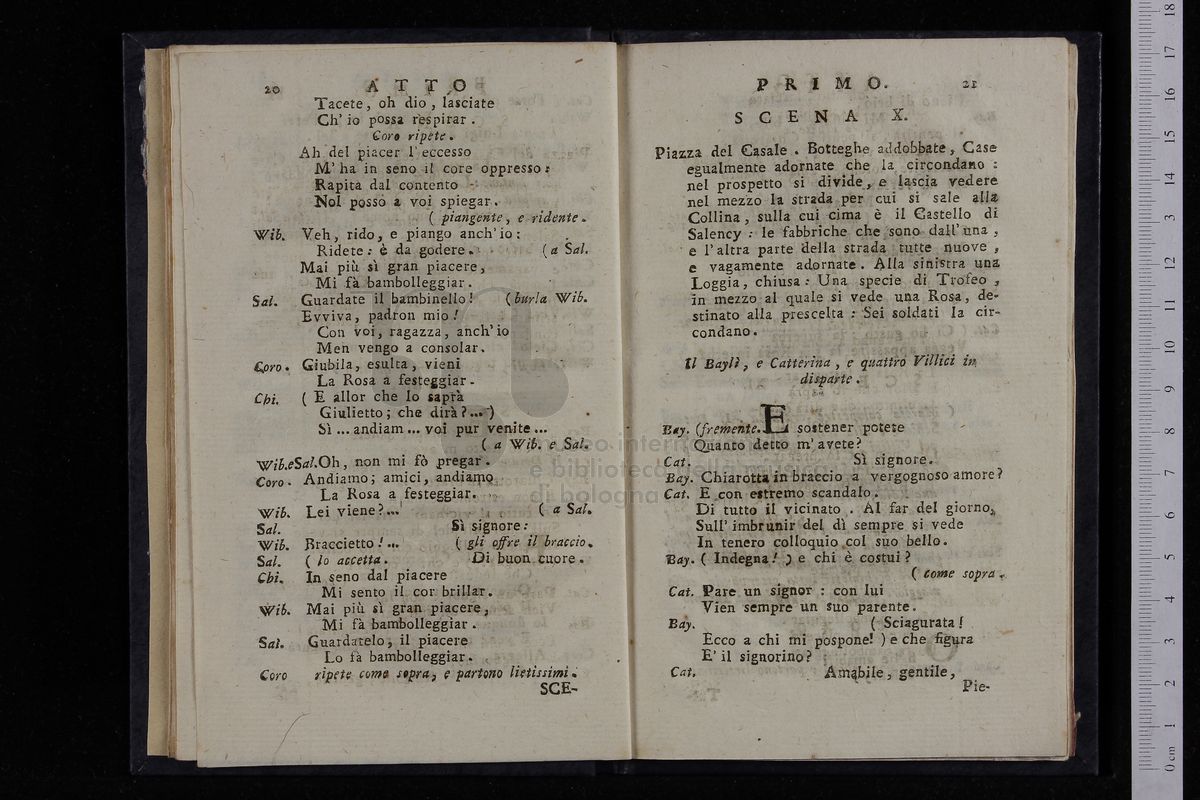 20 ATTO
Tacete, oh dio, lasciate
Ch' io possa respirar.
Coro ripete.
Ah del piacer l' eccesso
M' ha in seno il core oppresso:
Rapita dal contento
Nol posso a voi spiegar.
( piangente, e ridente.
Wib. Veh, rido, e piango anch' io:
Ridete: è da godere. (a Sal.
Mai più sì gran piacere,
Mi fà bambolleggiar.
Sal. Guardate il bambinello! (burla Wib.
Evviva, padron mio!
Con voi, ragazza, anch' io
Men vengo a consolar.
Coro. Giubila, esulta, vieni
La Rosa a festeggiar.
Chi. ( E allor che lo saprà
Giulietto; che dirà?... )
Sì ... andiam ... voi pur venite ...
( a Wib. e Sal.
Wib.eSal.Oh, non mi fò pregar.
Coro. Andiamo; amici, andiamo
La Rosa a festeggiar.
Wib. Lei viene?... ( a Sal.
Sal. Sì signore:
Wib. Braccietto!... ( gli offre il braccio.
Sal. ( lo accetta. Di buon cuore.
Chi. In seno dal piacere
Mi sento il cor brillar.
Wib. Mai più sì gran piacere,
Mi fà bambolleggiar.
Sal. Guardatelo, il piacere
Lo fà bambolleggiar.
Coro ripete come sopra, e partono lietissimi.
SCE-
PRIMO. 21
SCENA X.
Piazza del Casale. Botteghe addobbate, Case
egualmente adornate che la circondano:
nel prospetto si divide, e lascia vedere
nel mezzo la strada per cui si sale alla
Collina, sulla cui cima è il Castello di
Salency: le fabbriche che sono dall' una,
e l' altra parte della strada tutte nuove,
e vagamente adornate. Alla sinistra una
Loggia, chiusa: Una specie di Trofeo,
in mezzo al quale si vede una Rosa, de-
stinato alla prescelta: Sei soldati la cir-
condano.
Il Baylì, e Catterina, e quattro Villici in
disparte.
Bay. (fremente. E sostener potete
Quanto detto m' avete?
Cat. Sì signore.
Bay. Chiarotta in braccio a vergognoso amore?
Cat. E con estremo scandalo.
Di tutto il vicinato. Al far del giorno,
Sull' imbrunir del dì sempre si vede
In tenero colloquio col suo bello.
Bay. ( Indegna! ) e chi è costui?
( come sopra.
Cat. Pare un signor: con lui
Vien sempre un suo parente.
Bay. ( Sciagurata!
Ecco a chi mi pospone! ) e che figura
E' il signorino?
Cat. Amabile, gentile,
Pie-
museo internazionale
e biblioteca della musica
di bologna
0 cm 1 2 3 4 5 6 7 8 9 10 11 12 13 14 15 16 17 18